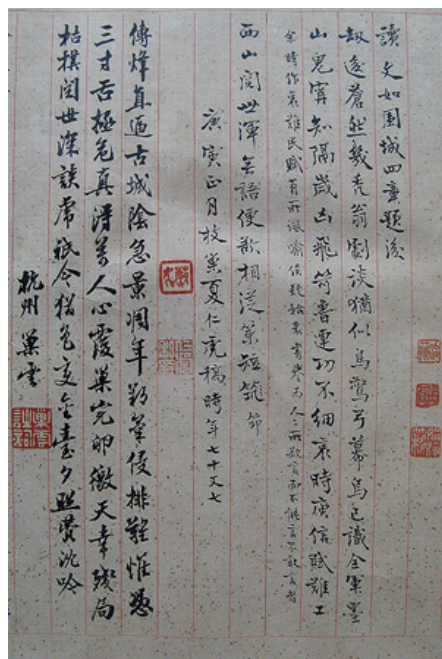 讀文如圍城四章題後
劫後蒼然幾禿翁劇談猶似鳥驚弓幕烏已識全軍
山鬼寧知隔歲凶飛箝魯連功不細哀時庾信賦難工
余時作哀難民賦有所諷喻人人所欲言而不能言不敢言者
西山閱世渾無語便欲相從短筇
庚寅正月枝巢夏仁虎稿時年七十又七
傳烽直逼古城陰急景凋年侵排難惟憑
三寸舌極危真得萬人心覆巢完卵徼天幸殘局
枯棋閱世深談虎祇今猶色變金臺夕照費沈吟
杭州巢雲